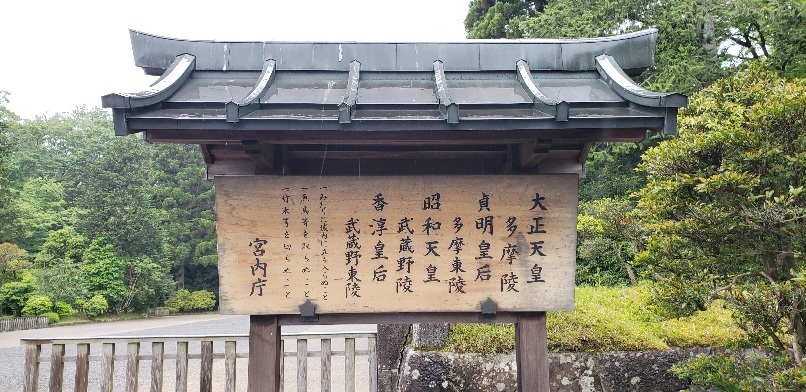 大正天皇
多摩陵
貞明皇后
多摩東陵
昭和天皇
武蔵野陵
香淳皇后
武蔵野東陵
一みだりに域内に立ち入らぬこと
一魚鳥等を取らぬこと
一竹木等を切らぬこと
宮内庁